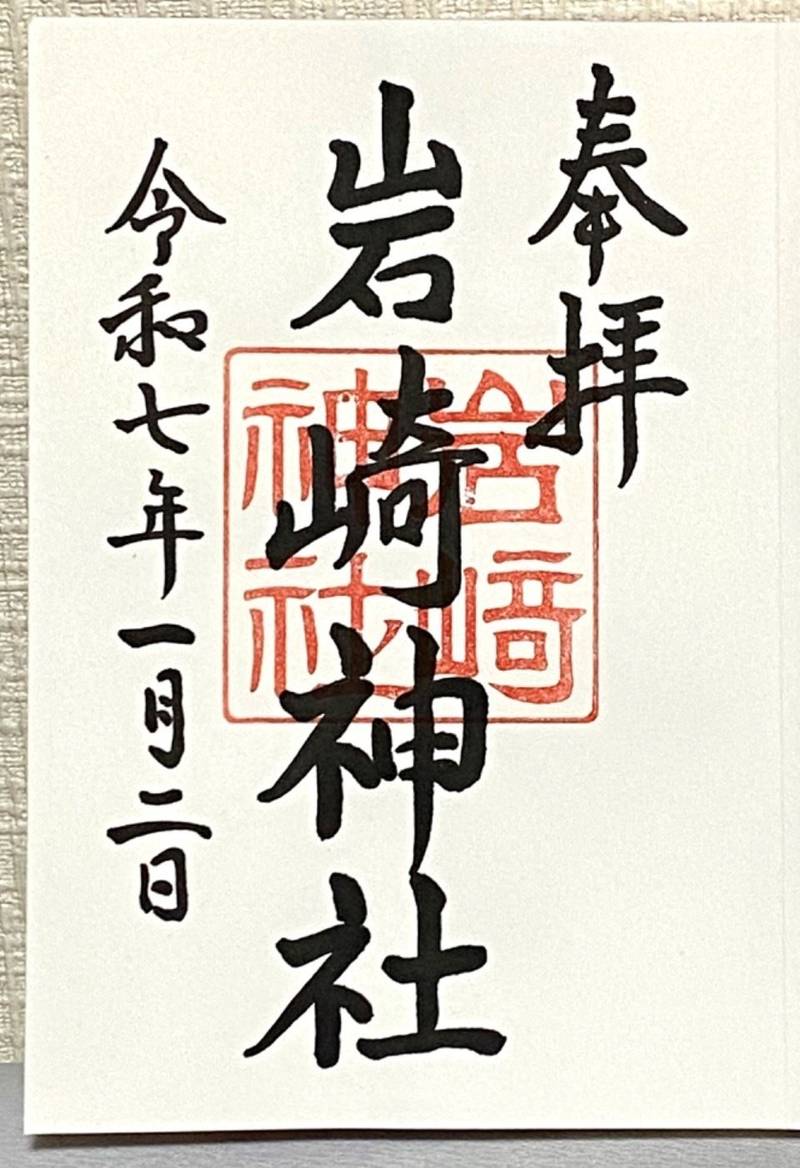 奉拝
岩崎神社
岩﨑
神社
令和七年一月二日